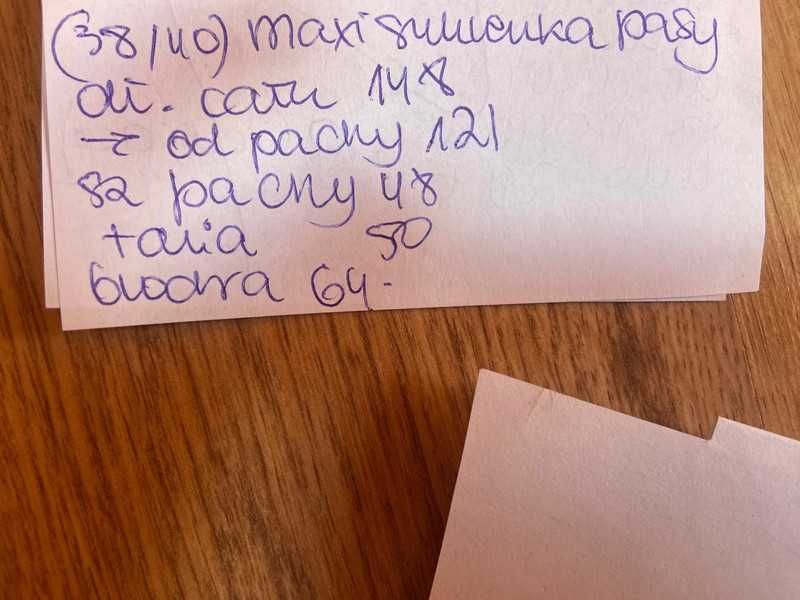 (38/40) maxi sukienka pasy
dł. całk 148
→ od pachy 121
sz pachy 48
talia 50
biodra 64.